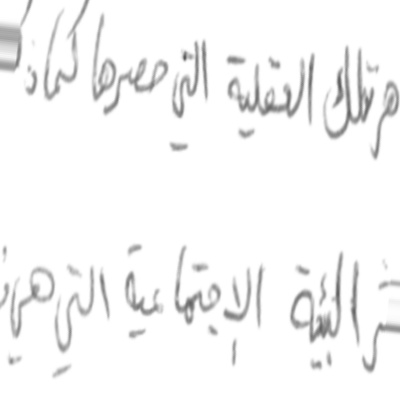 هر تلك العقلية التي حصرها كما
البيئة الإجتماعية التي هي